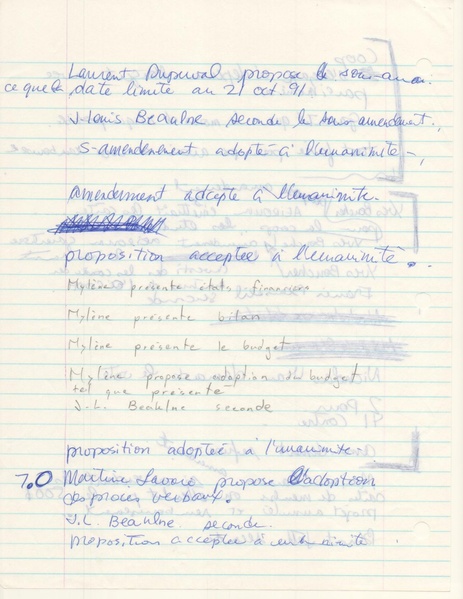 Laurent Duperval propose le sous-am.
ce que la date limite au 21 oct. 91
J-Louis Beaulne seconde le sous amendement.
S-amendement adopté à l'unanimité -
amendement adopté à l'unanimité.
proposition acceptée à l'unanimité.
Mylène présente états financiers
Mylène présente bilan
Mylène présente le budget
Mylène propose adoption du budget
tel que présenté
J.L. Beaulne seconde
proposition adoptée à l'unanimité.
7.0 Martine Lavoie propose l'adoption
des procès verbaux.
J.L. Beaulne seconde.
proposition acceptée à unanimité